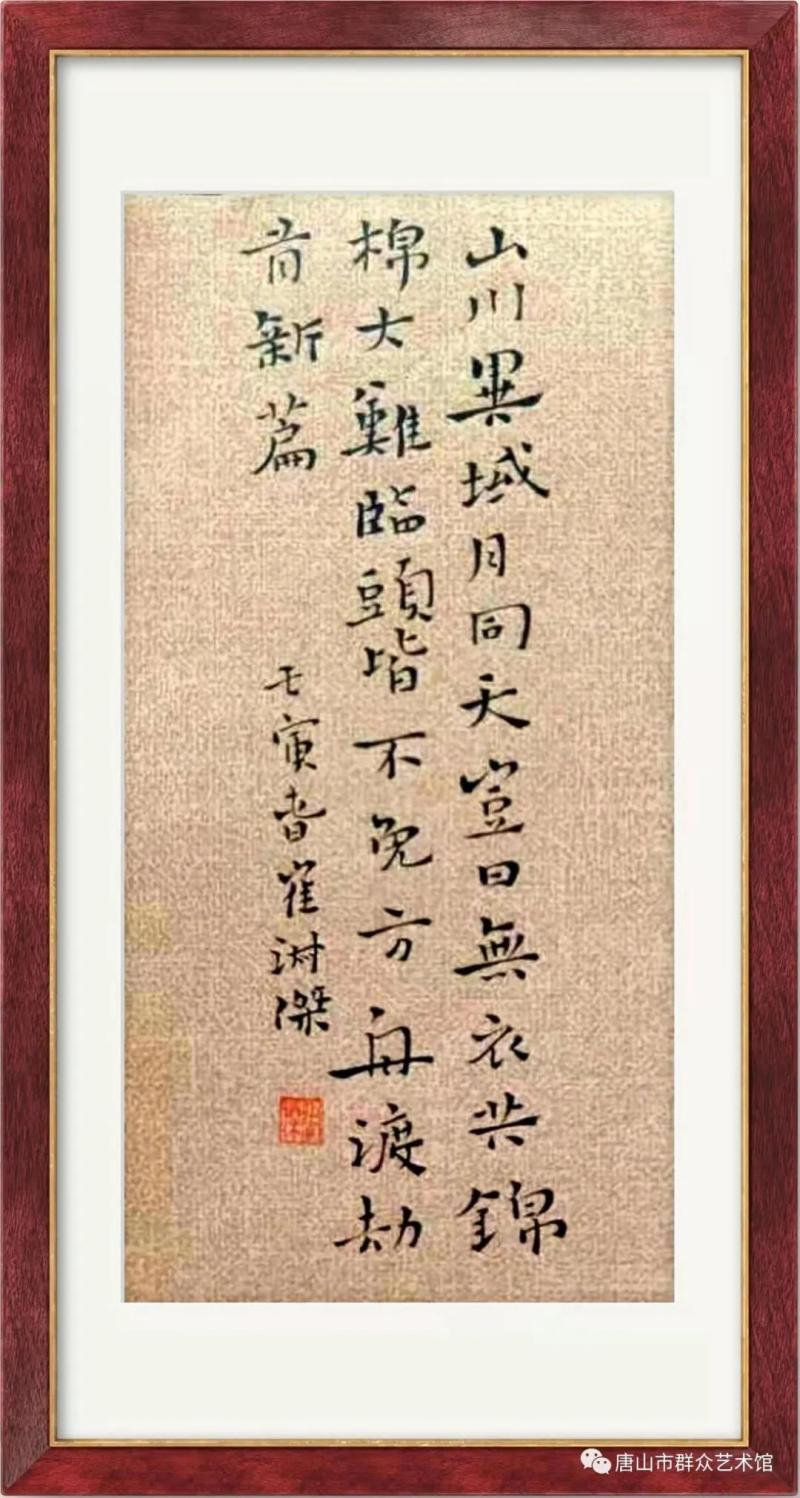 山川異域月同天豈曰無衣共錦
棉大難臨頭皆不免方舟渡劫
新篇
壬寅春崔淑傑
唐山市群众艺术馆